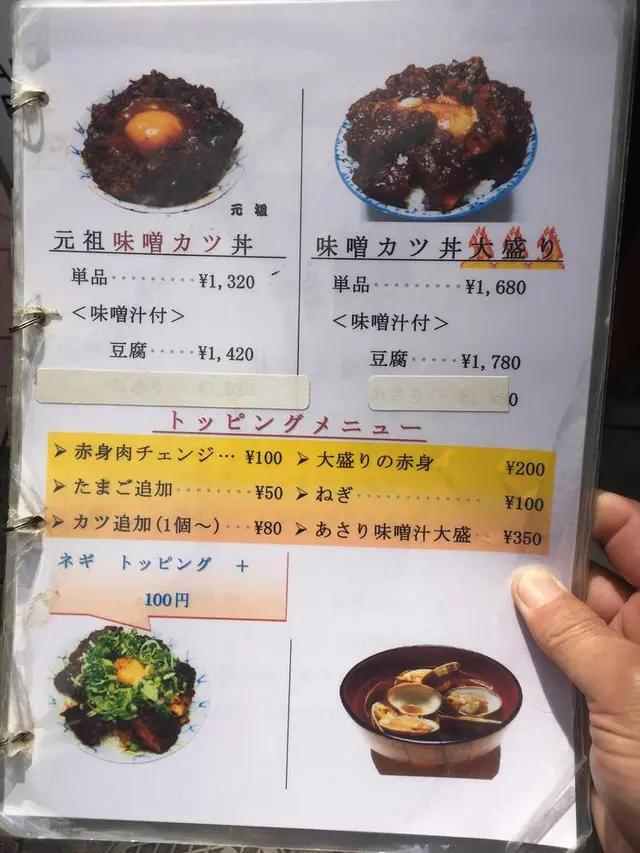 元祖
元祖味噌カツ丼
単品·········¥1,320
＜味噌汁付＞
豆腐·····¥1,420
味噌カツ丼大盛り
単品··········¥1,680
＜味噌汁付＞
豆腐·····¥1,780
トッピングメニュー
➢ 赤身肉チェンジ… ¥100
➢ たまご追加········ ¥50
➢ カツ追加(1個～)··· ¥80
➢ 大盛りの赤身 ¥200
➢ ねぎ·············· ¥100
➢ あさり味噌汁大盛·· ¥350
ネギ トッピング ＋
100円